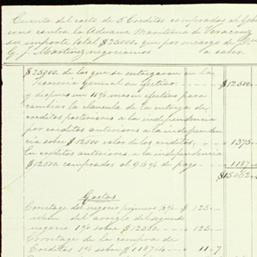 Cuenta del costo de 5 Creditos comprados al Gobierno
contra la Aduana Maritima de Veracruz
su importe total $25000. que por encargo de
y J. Martinez negociamos a saber.
$25000 de los que se entregaron en la
Tesoreria General en efectivo $12500.
y despues un 11% mas en efectivo para
cambiar la clausula de la entrega de
creditos posteriores a la independencia
por creditos anteriores a la independencia
sobre $12500 valor de los creditos 1375
En creditos anteriores a la independencia
$12500 comprados al 9½% de pago 1187.4
$15062.4
Gastos
Corretage del negocio primero 1% $ 125
 del arreglo del segundo
negocio 1% sobre 12500. 125
Corretage de la compra de
Creditos 1% sobre 1187.4 11.7